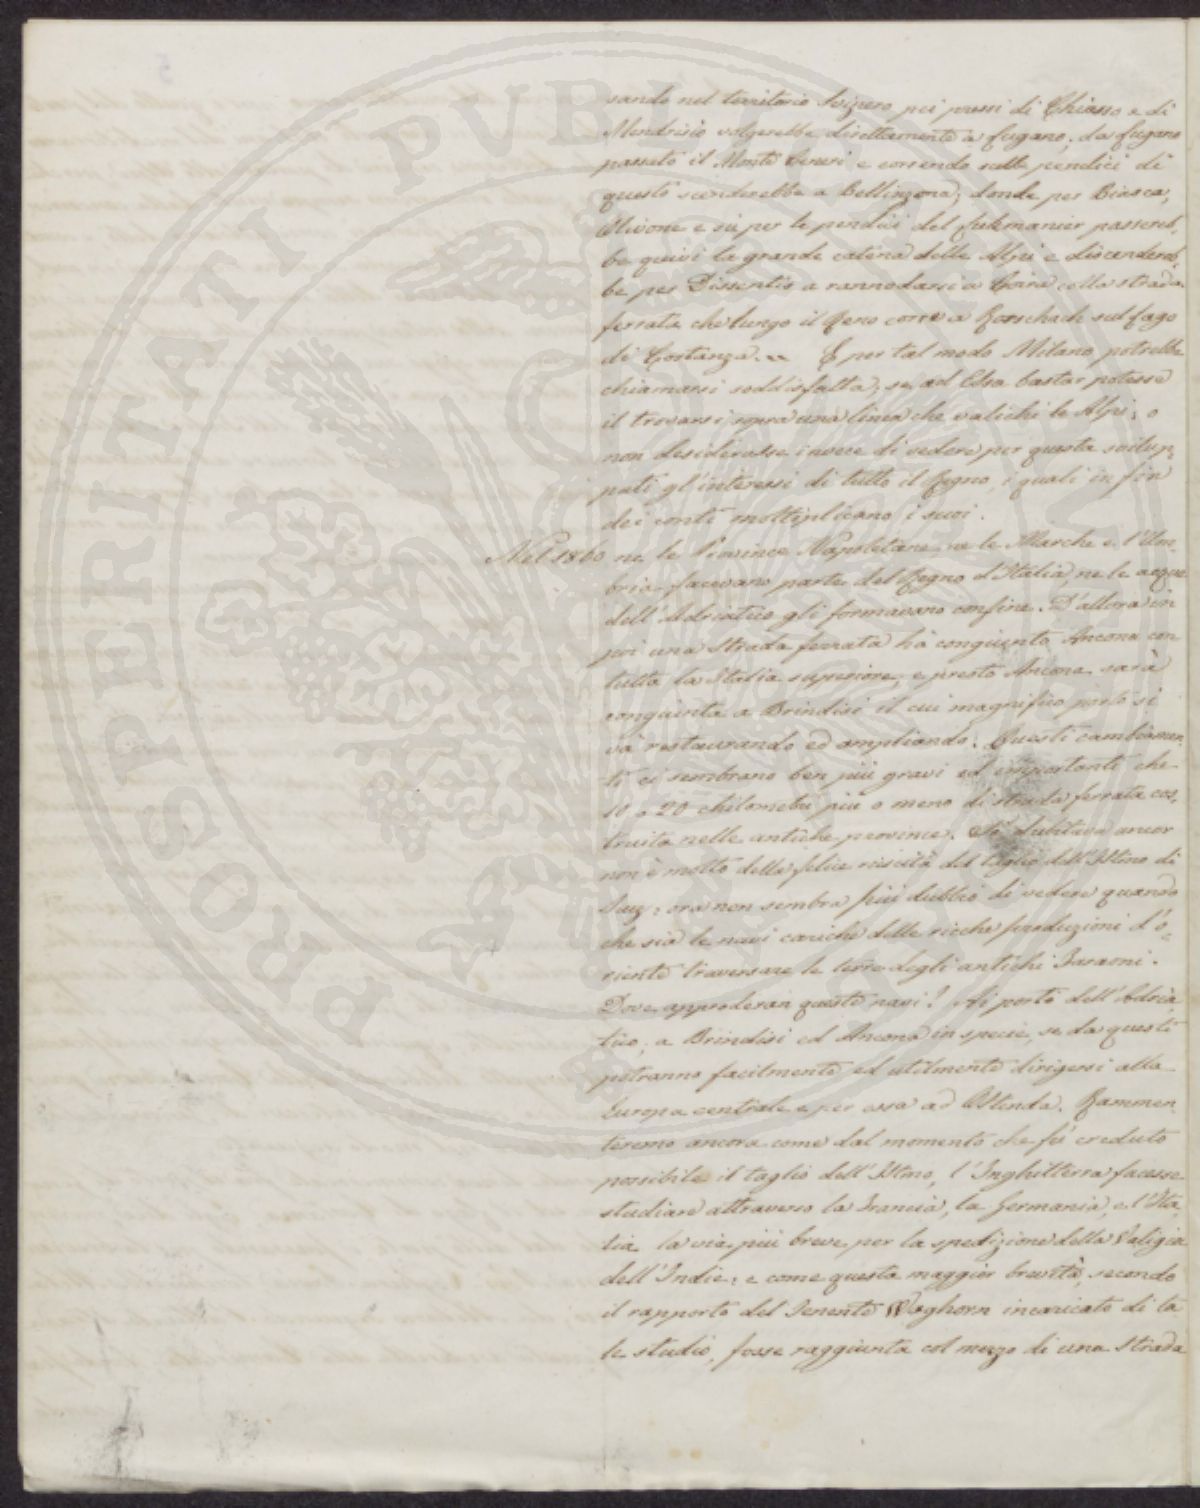 PROSPERITATI PVBLICAE
sando nel territorio Svizzero pei pressi di Chiasso e di
Mendrisio volgerebbe direttamente a Lugano; da Lugano
passato il Monte Ceneri e correndo sulle pendici di
questo scenderebbe a Bellinzona; donde per Biasca,
Olivone e sù per le pendici del Lukmanier passereb,
be quivi la grande catena delle Alpi e discendereb,
be per Dissentis a rannodarsi a Coira colla strada
ferrata che lungo il Reno corre a Rorschach sul Lago
di Costanza. E per tal modo Milano potrebbe
chiamarsi soddisfatta, se ad Essa bastar potesse
il trovarsi sopra una linea che valichi le Alpi; o
non desiderasse invece di vedere per questa svilup,
pati gl'interessi di tutto il Regno, i quali in fin
dei conti moltiplicano i suoi.
Nel 1860 ne le Provincie Napoletane, ne le Marche e l'Um,
bria facevano parte del Regno d'Italia, ne le acque
dell'Adriatico gli formavano confine. D'allora in
poi una Strada ferrata hà congiunto Ancona con
tutta la Italia superiore, e presto Ancona sarà
congiunta a Brindisi il cui magnifico porto si
và restaurando ed ampliando. Questi cambiamen,
ti ci sembrano ben più gravi ed importanti che
10 o 20 chilometri più o meno di strada ferrata cos,
truita nelle antiche provincie. Si dubitava ancor
non è molto della felice riescita del taglio dell'Istmo di
Suez: ora non sembra più dubbio di vedere quando
che sia le navi cariche delle ricche produzioni d'o,
riente traversare le terre degli antichi Faraoni.
Dove approderan queste navi? Ai porti dell'Adria,
tico; a Brindisi ed Ancona in specie, se da questi
potranno facilmente ed utilmente dirigersi alla
Europa centrale e per essa ad Ostenda. Rammen,
teremo ancora come dal momento che fù creduto
possibile il taglio dell'Istmo, l'Inghilterra facesse
studiare attraverso la Francia, la Germania, e l'Ita,
lia la via più breve per la spedizione della Valigia
dell'Indie: e come questa maggior brevità, secondo
il rapporto del Tenente Waghorn incaricato di ta
le studio, fosse raggiunta col mezzo di una Strada